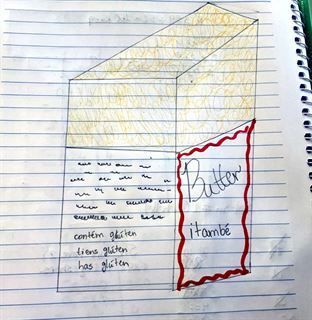 contém glúten
tiens glúten
has glúten
Butter
itambé